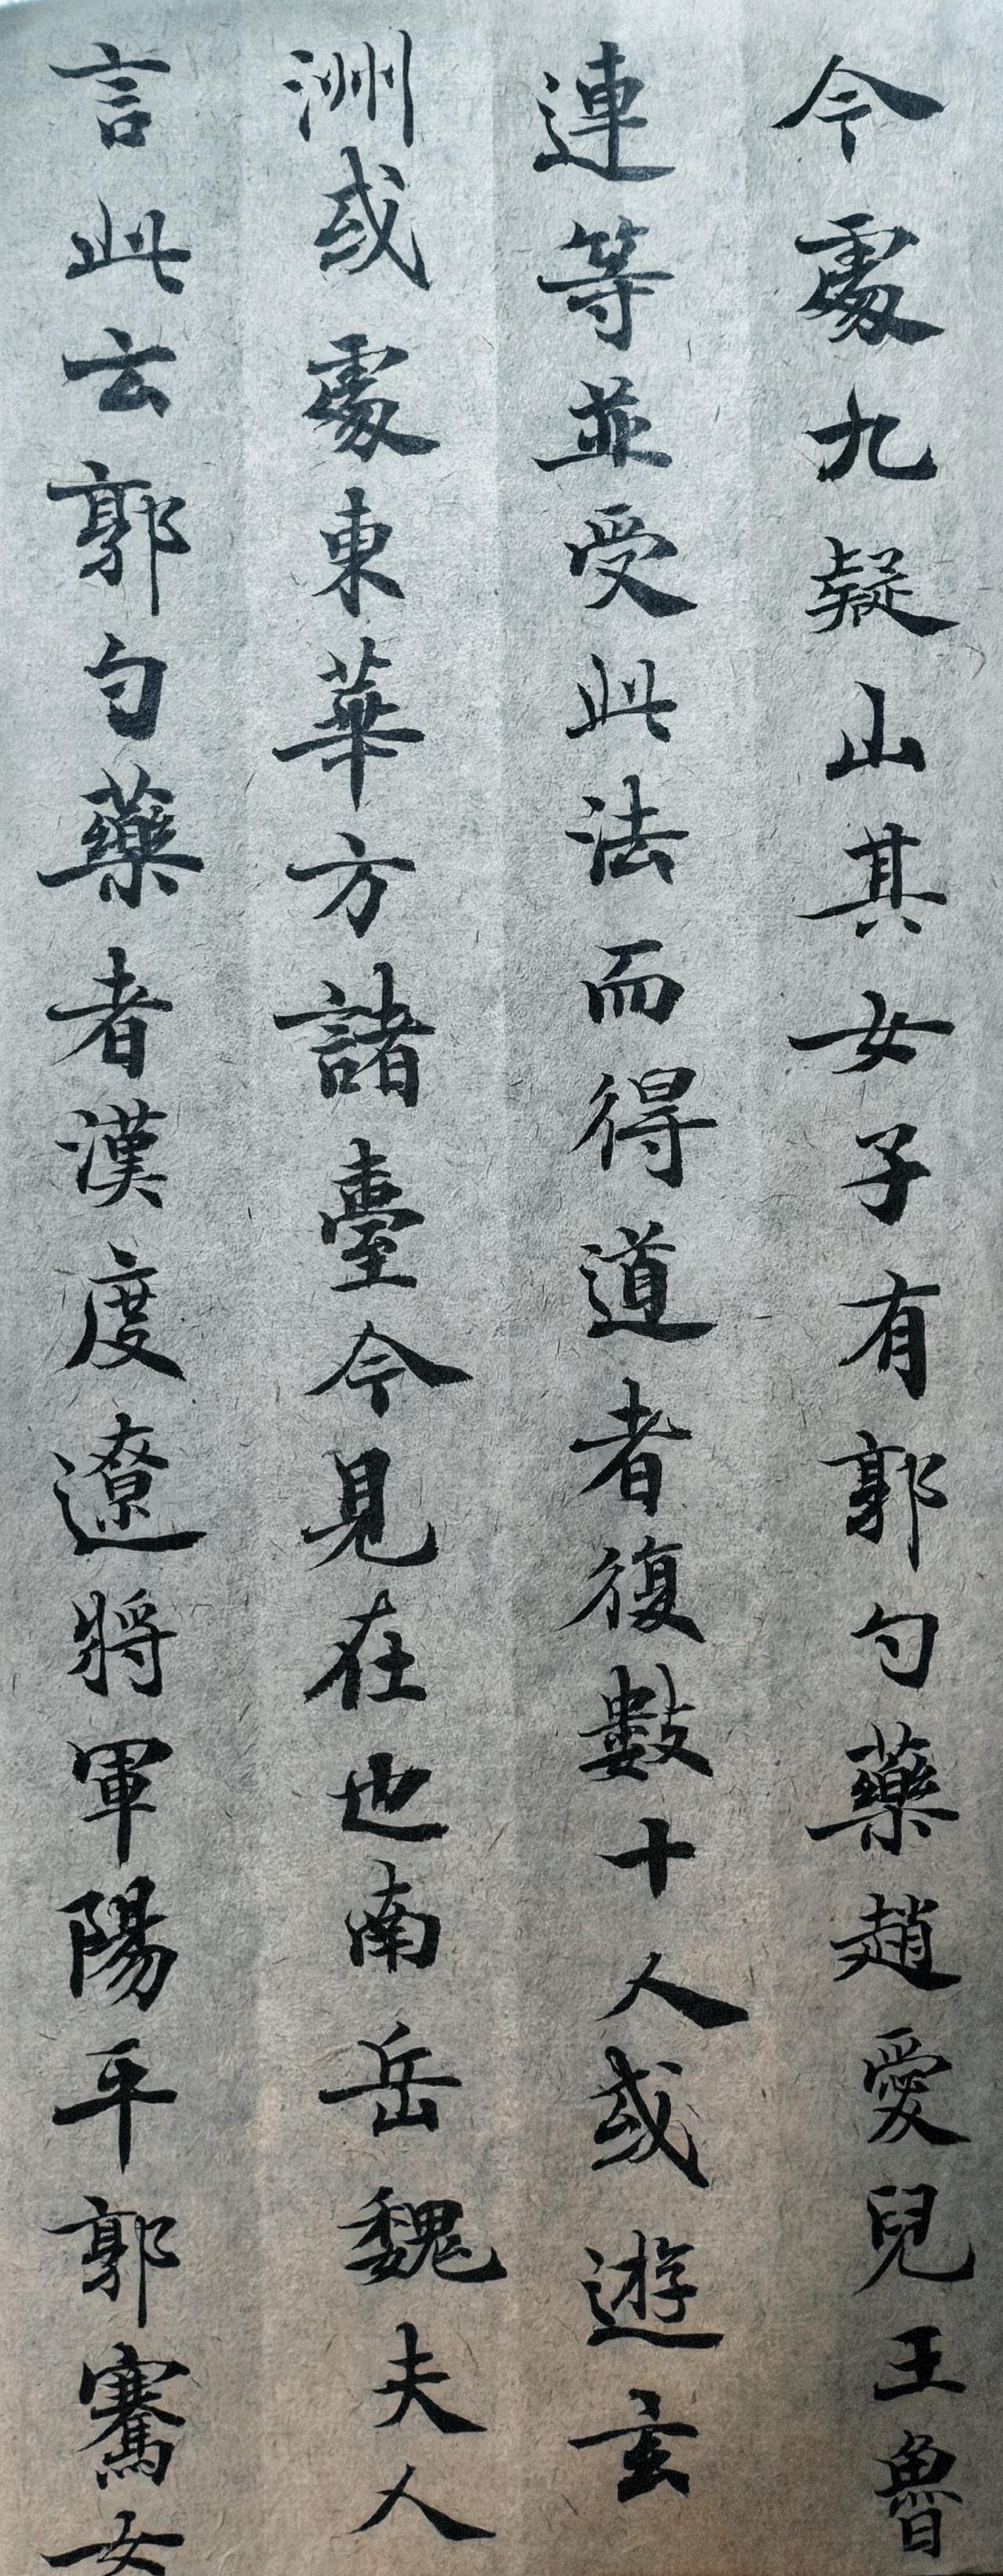 今處九疑山其女子有郭勺藥趙愛兒王魯
連等並受此法而得道者復數十人或遊玄
洲或處東華方諸臺今見在也南岳魏夫人
言此云郭勺藥者漢度遼將軍陽平郭騫女